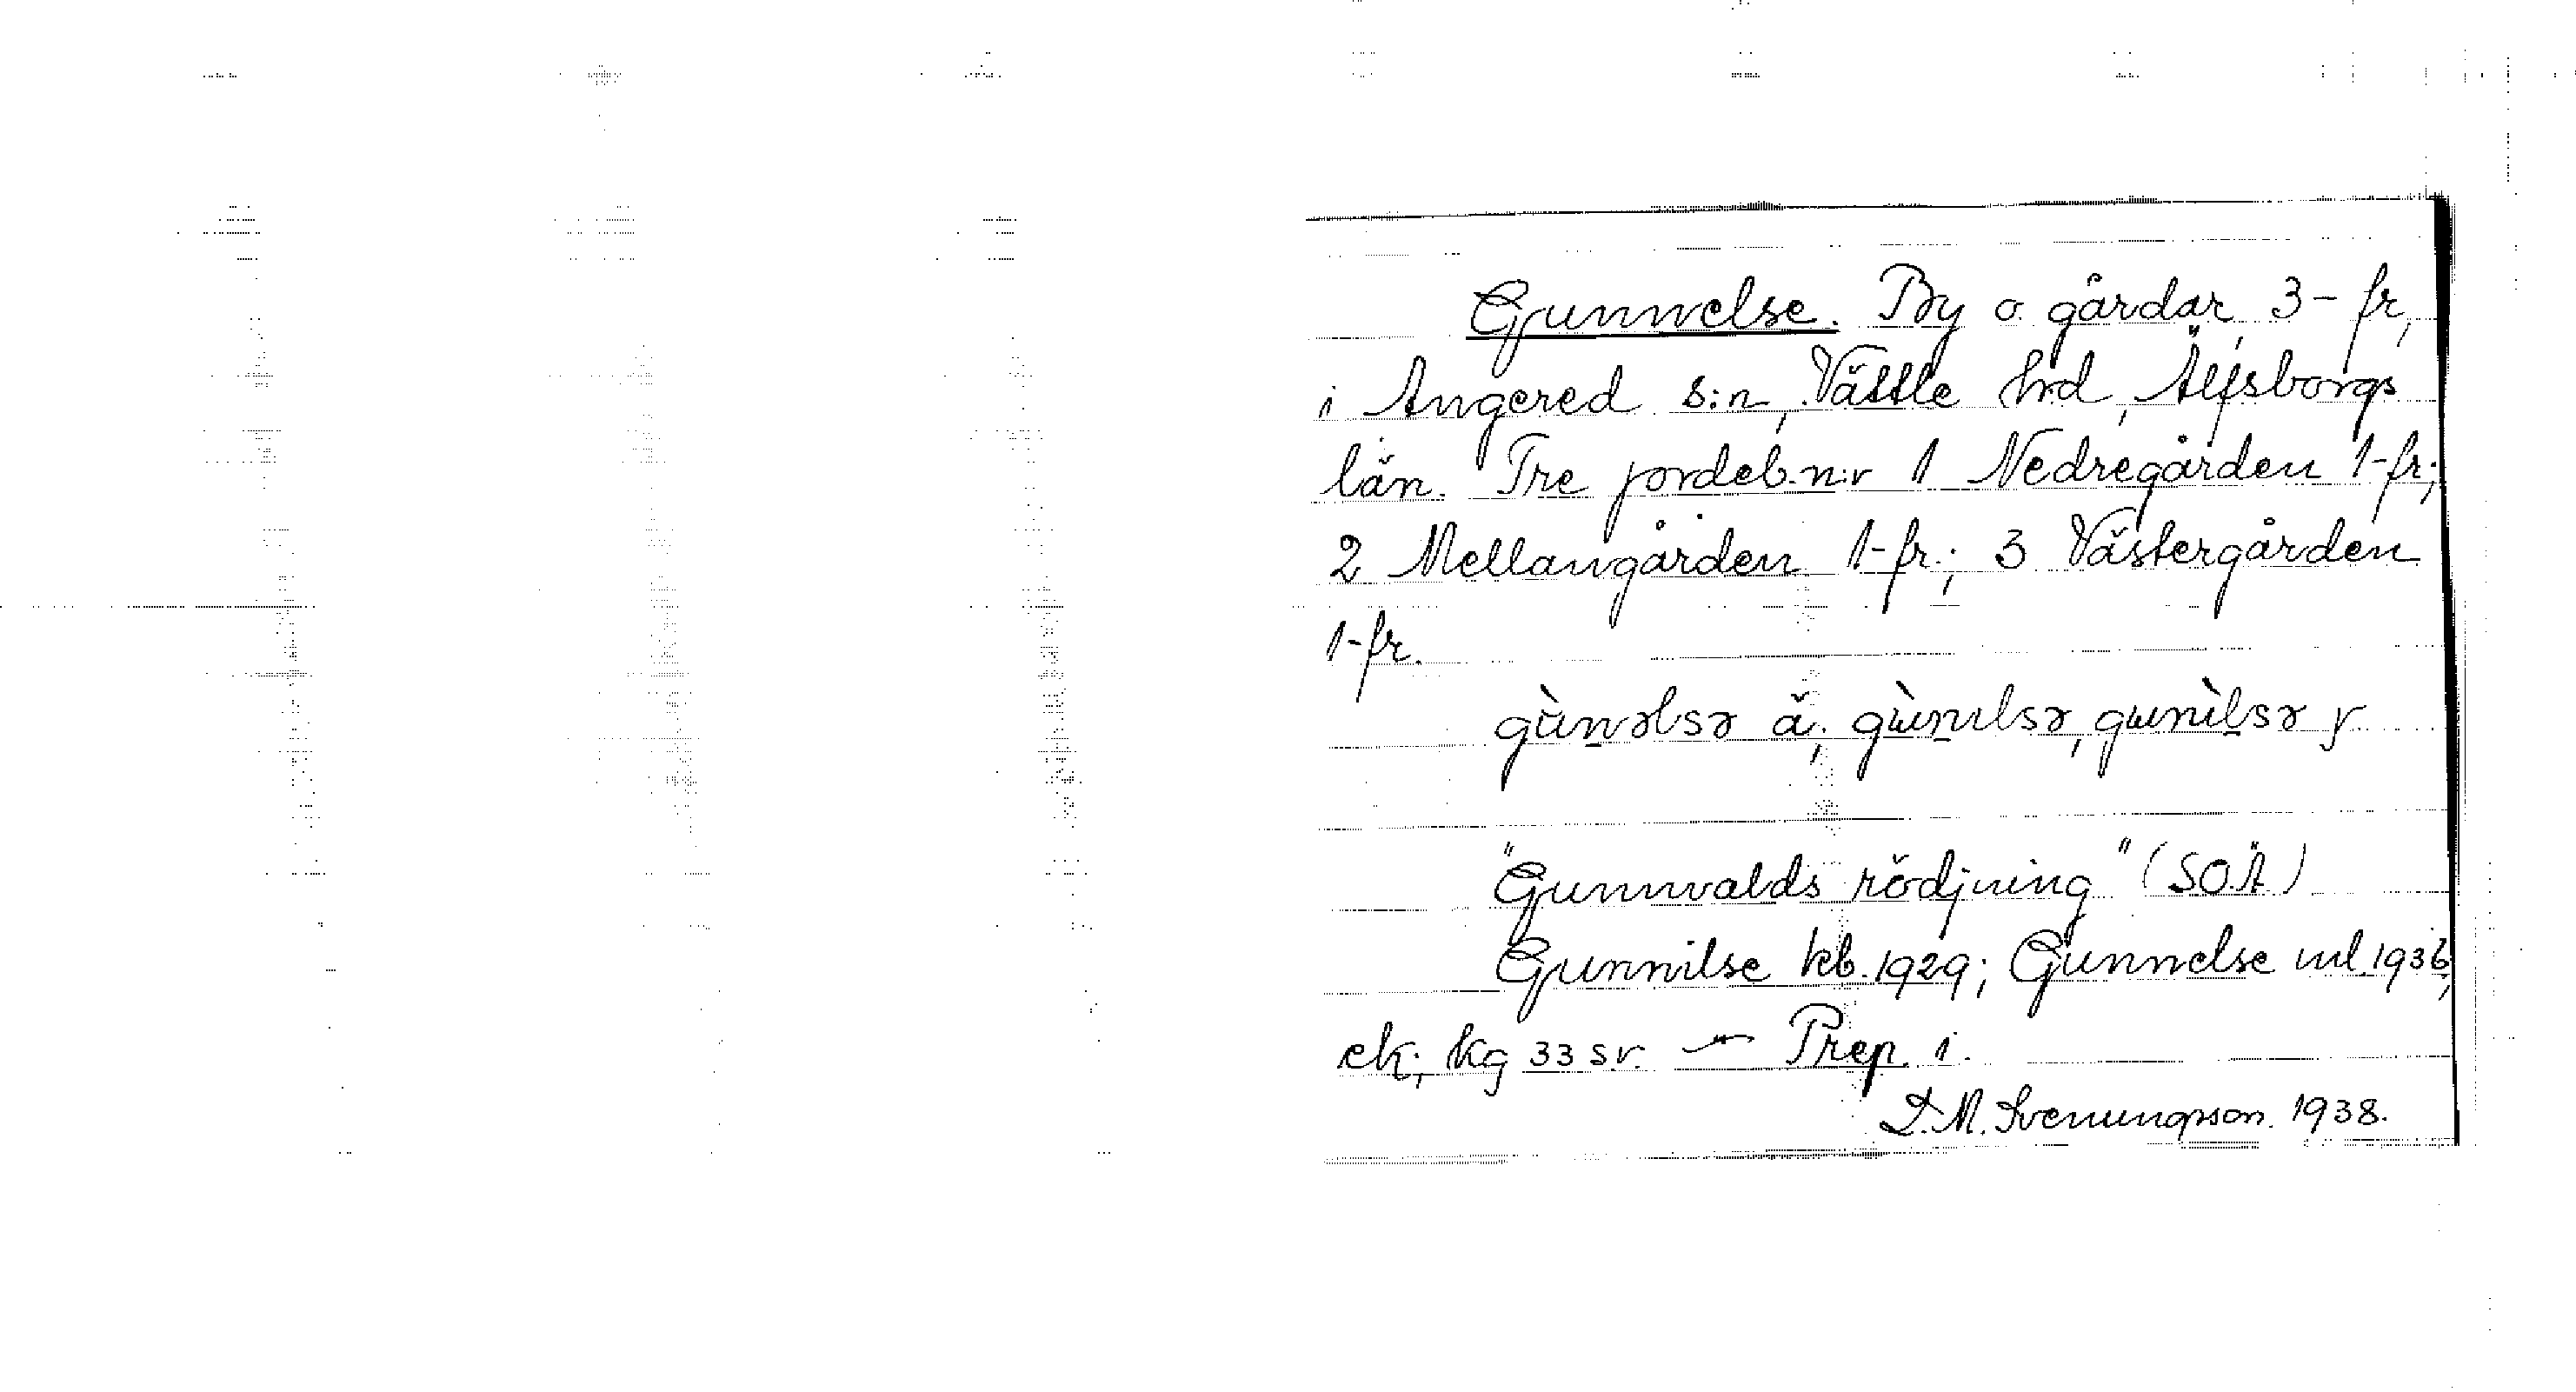 Gunnelse. By o. gårdar, 3- fr,
i Angered s:n, Vättle hrd, Älfsborgs
län. Tre jordeb.n:r 1 Nedregården 1-fr;
2 Mellangården 1-fr.; 3 Västergården
1-fr.
gùn̲əlsə ä; gùn̲ılsə, gɯnìl̲sə y
"Gunnvalds rödjning" (SOÄ)
Gunnilse kb. 1929; Gunnelse ml. 1936,
ek; kg 33 sv. — Prep. i.
D. M. Svenungsson. 1938.